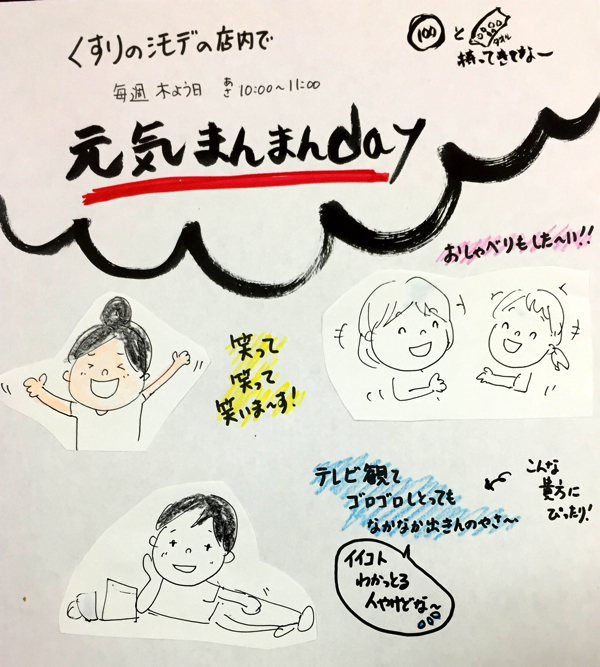 くすりのシモデの店内で
毎週 木よう日 あさ 10:00～11:00
100 と タオル
持ってきてなー
元気まんまんday
おしゃべりもした～い!!
笑って
笑って
笑いま～す!
テレビ観て
ゴロゴロしとっても
なかなか出きんのやさ～
こんな
貴方に
ぴったり!
イイコト
わかっとる
人やけどな～